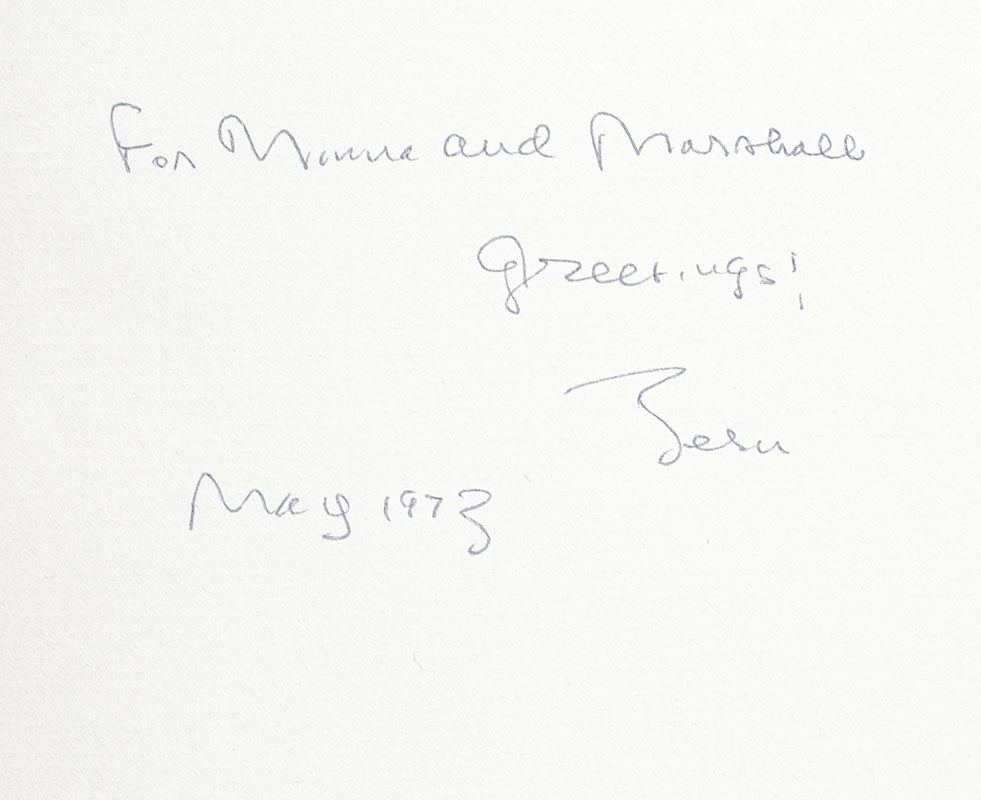 For Minna and Marshall
Greetings!
May 1973